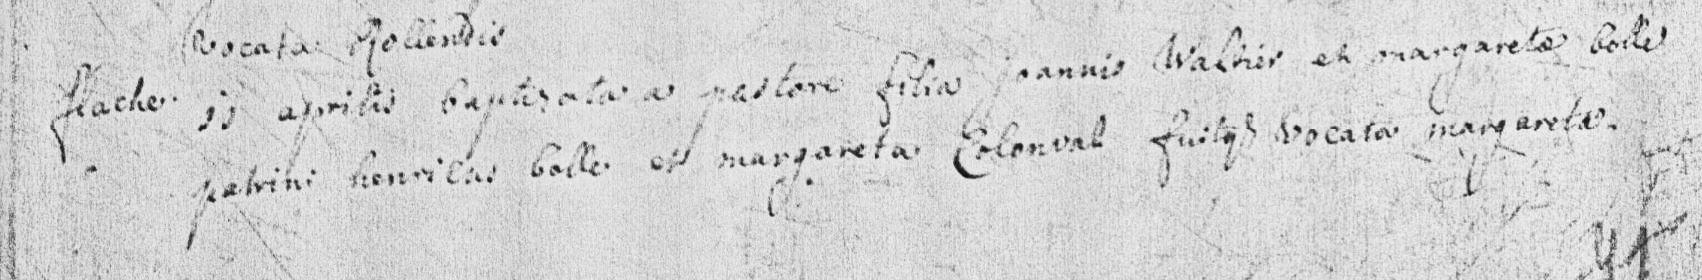 vocata Rollendis
flache 11 aprilis baptizata a pastore filia joannis Waltier et margaretæ bolle
patrini henricus bolle et margareta Colonval fuitq3 vocata margareta.
41